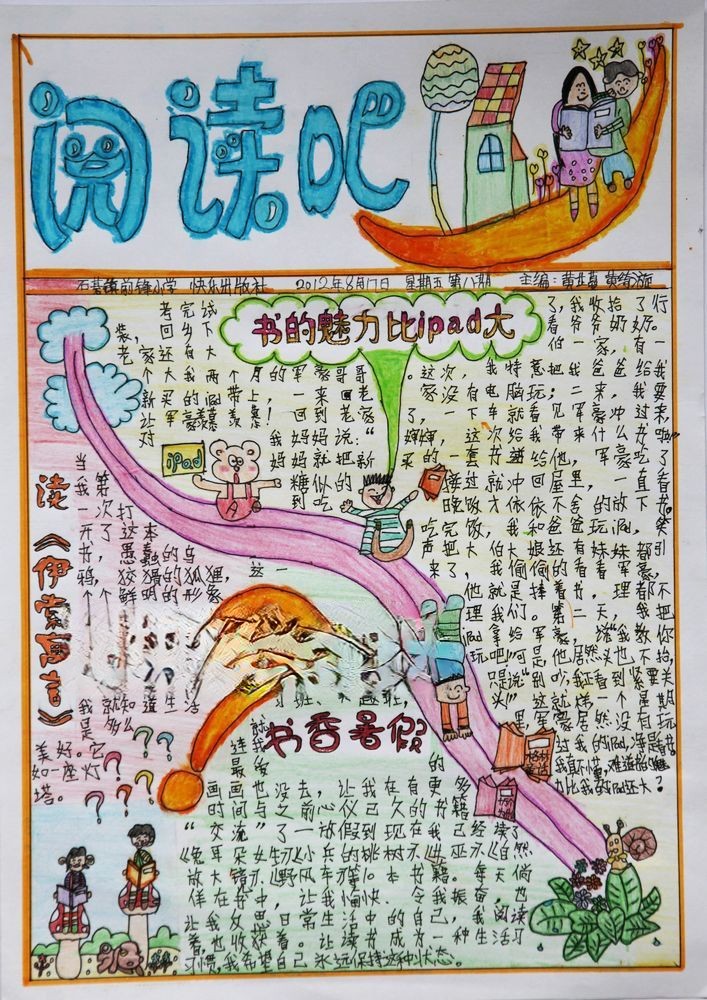 阅读吧
石莫镇前锋小学 快乐出版社 2012年8月17日 星期五 第八期 主编:黄
书的魅力比ipad大
考完试
了,我收拾了行
装,回乡下
看爷爷奶奶。
老家还有大
伯一家,有一
个大我两个月的军豪哥哥。这次,我特意把我爸爸给我
新买的ipad带上,一来回老家没有电脑玩;二来,我要
让军豪羡慕羡慕!回到老家了,一下车就看见军豪冲过来,
对我妈妈说:“婶婶,这次给我带来什么书啦”
妈妈就把新买的一套书递给他,军豪吃了
糖似的接过就冲回屋里,一直看
到吃晚饭才依依不舍的放下书。
吃完饭,我和爸爸玩ipad,笑
声把大伯大娘还有妹妹都引
来了,我偷偷的看看军豪,
他就是捧着书,理都不
理我们。第二天,我把
ipad拿给军豪,说“我教你
玩吧!”可是他居然头也不抬,
只是说“别吵,我在看到紧要关
头!”这就样一个星期
里,军豪居然没有玩
过我的ipad,净是看书。
我真不懂,难道书的魅
力比我的ipad还大?
ipad
读《伊索寓言》
当我第
一次打
开了这本
书,愚蠢的乌
鸦,狡猾的狐狸,这一
个个鲜明的形象
我就知道生活
是多么
美好。它
如一座灯
塔。
书香暑假
习班、兴趣班,
就
连我
最爱的
画画也没去,让我在有更多
时间与之前心仪已久的书籍
“交流”了一放假到现在我已经读了
《兔耳朵女生》《小兵的桃树》《巫术》《自然
放大镜》《野风车》等10本书籍。每天倘
佯在书中,让我愉快、令我振奋,也
让我反思日常生活中的自己,我阅读
着也收获着。让读书成为一种生活习
习惯,我希望自己永远保持这种状态。